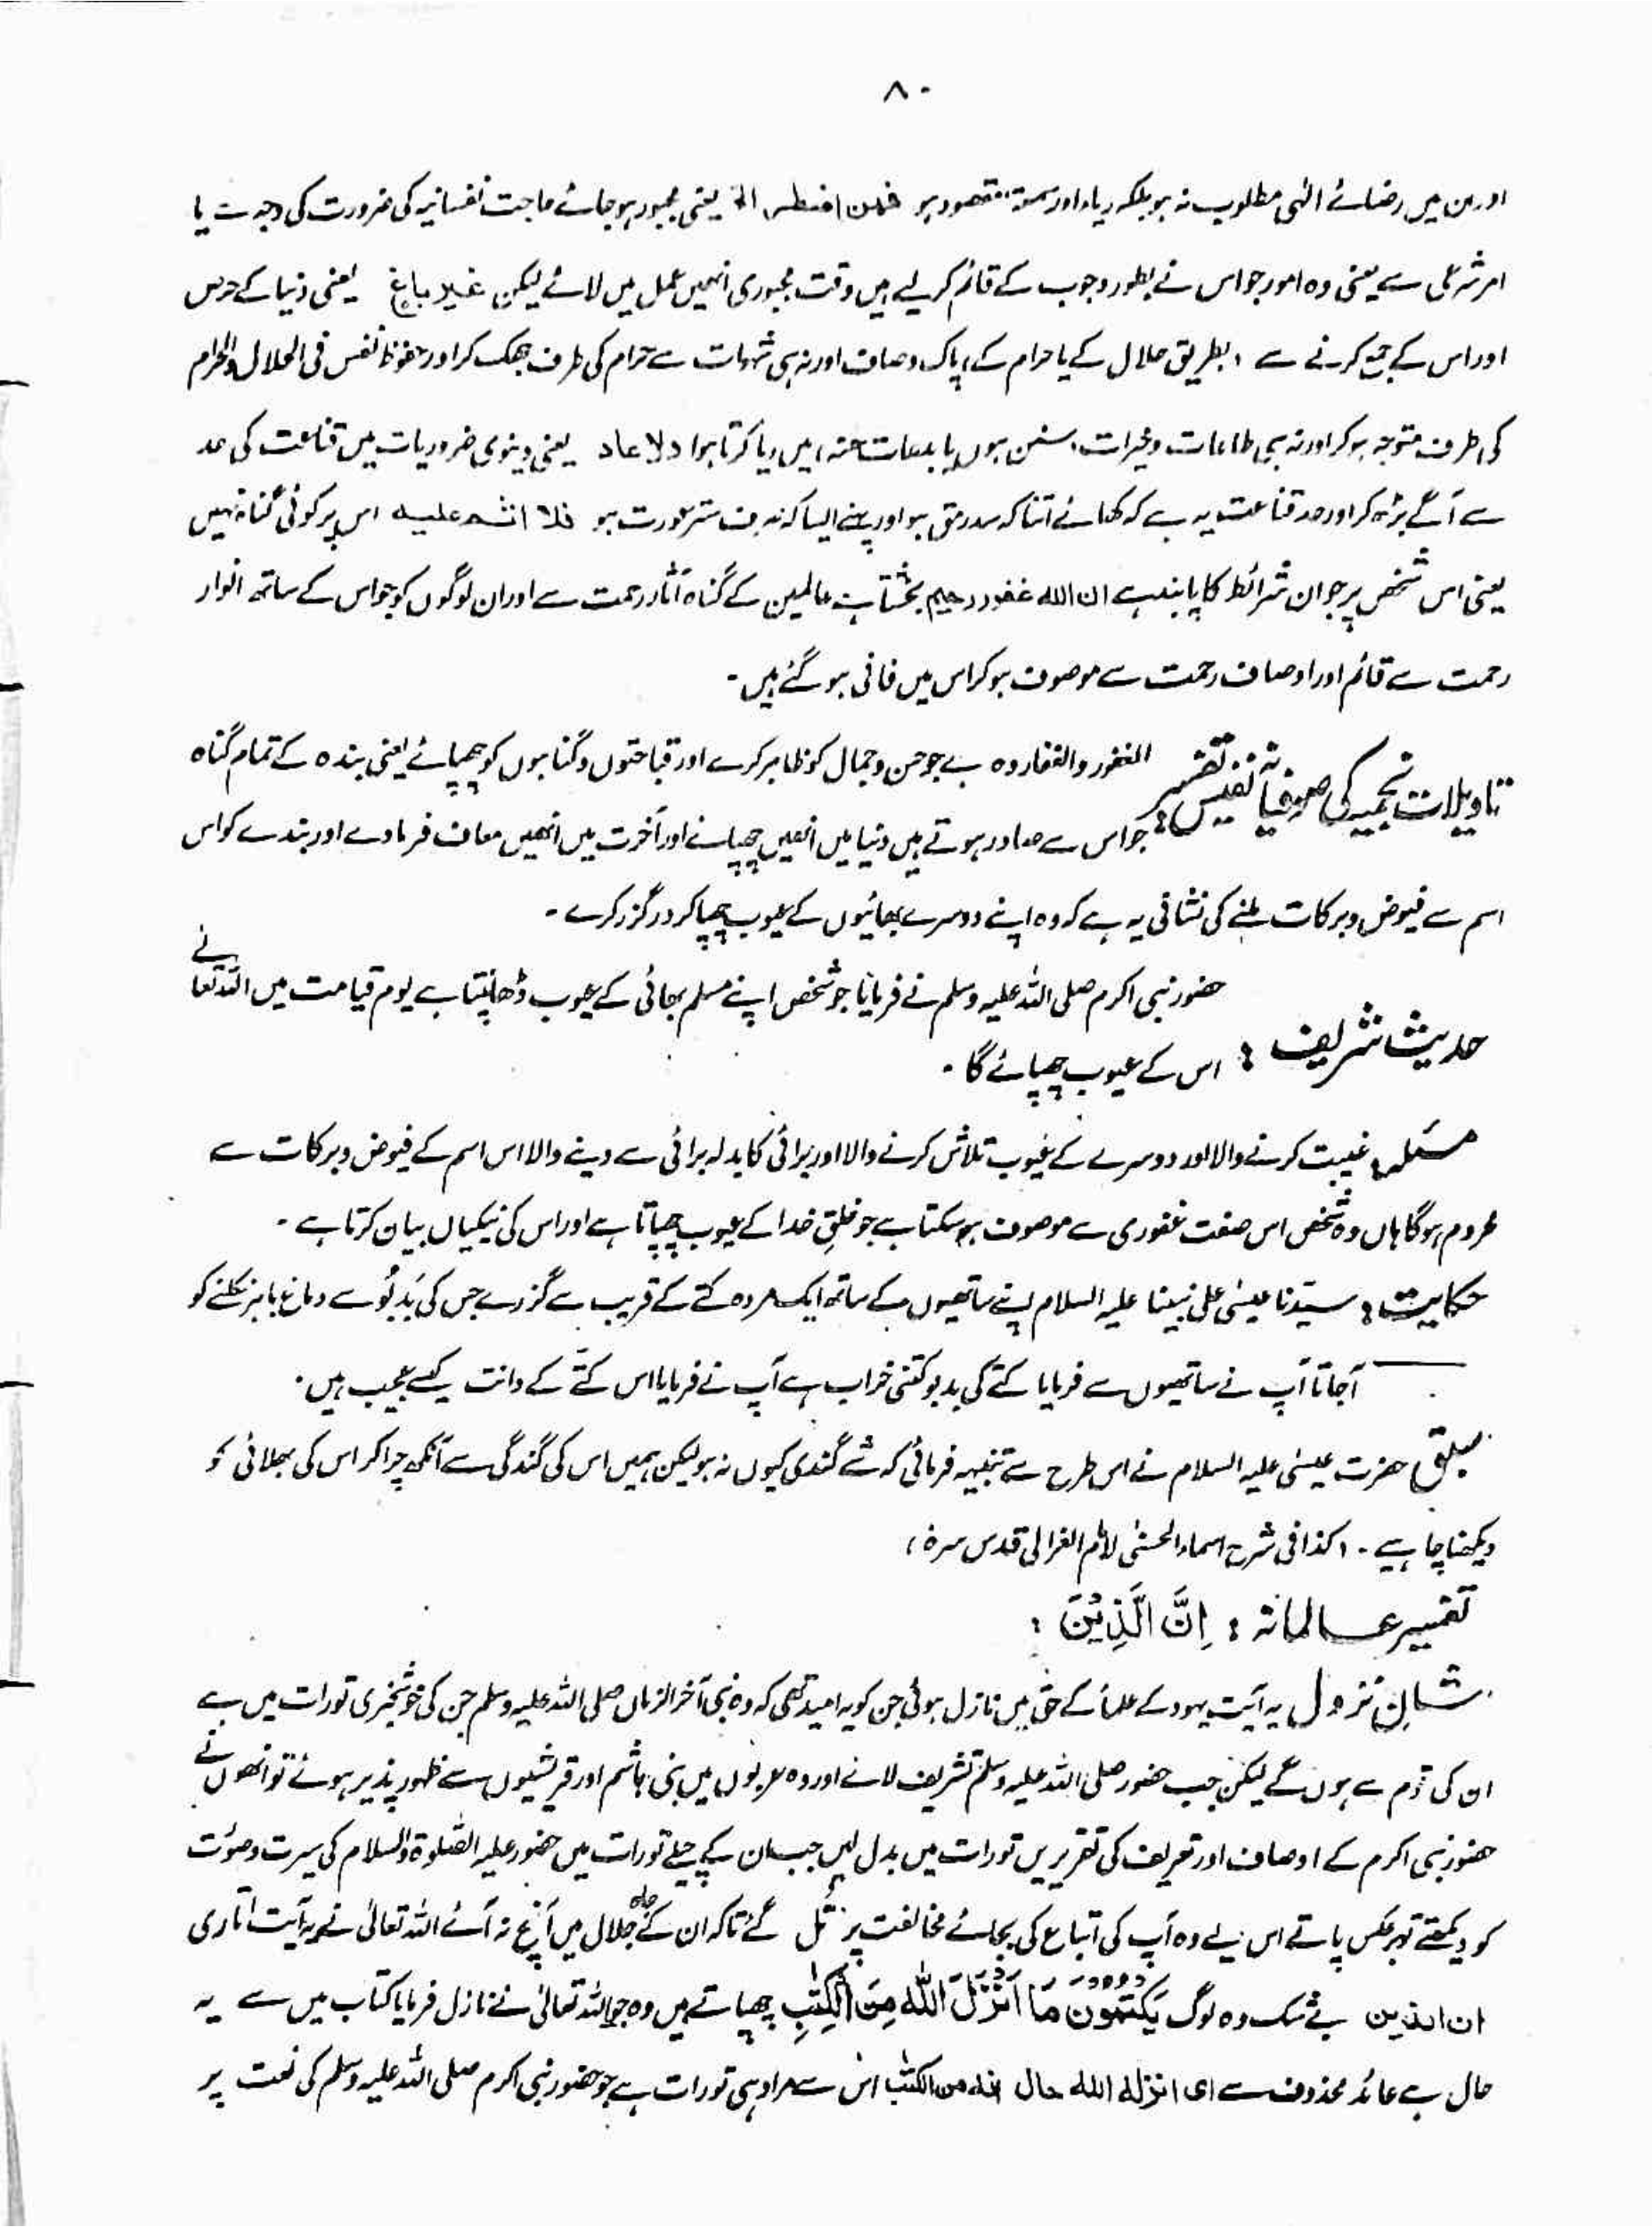 ۸۰
اور من میں رضائے الٰہی مطلوب نہ ہو بلکہ ریاء اور سمعۃ مقصود ہو فمن اضطر الخ یعنی مجبور ہو جائے حاجت نفسانیہ کی ضرورت کی وجہ سے یا
امر شرعی سے یعنی وہ امور جو اس نے بطور وجوب کے قائم کر لیے ہیں وقت مجبوری انہیں عمل میں لائے لیکن غیر باغ یعنی دنیا کے حرص
اور اس کے جمع کرنے سے ، بطریق حلال کے یا حرام کے ، پاک و صاف اور نہ ہی شبہات سے حرام کی طرف جھک کر اور حظوظ نفس فی الحلال والحرام
کی طرف متوجہ ہو کر اور نہ ہی طاعات و خیرات ، سنن ہوں یا بدعات حسنہ ، میں ریا کرتا ہوا ولا عاد یعنی دینوی ضروریات میں قناعت کی حد
سے آگے بڑھ کر اور حد قناعت یہ ہے کہ کھانے اتنا کہ سد رمق ہو اور پہنے ایسا کہ نہ ستر عورت ہو فلا اثم علیہ اس پر کوئی گناہ نہیں
یعنی اس شخص پر جو ان شرائط کا پابند ہے ان اللہ غفور رحیم بخشتا ہے عالمین کے گناہ آثار رحمت سے اور ان لوگوں کو جو اس کے ساتھ انوار
رحمت سے قائم اور اوصاف رحمت سے موصوف ہو کر اس میں فانی ہو گئے ہیں ۔
تاویلات نجمیہ کی صوفیانہ نفیس تفسیر : الغفور والغفار وہ ہے جو حسن و جمال کو ظاہر کرے اور قباحتوں و گناہوں کو چھپائے یعنی بندہ کے تمام گناہ
جو اس سے صادر ہوتے ہیں دنیا میں انھیں چھپائے اور آخرت میں انھیں معاف فرمادے اور بندے کو اس
اسم سے فیوض و برکات ملنے کی نشانی یہ ہے کہ وہ اپنے دوسرے بھائیوں کے عیوب چھپا کر درگزر کرے ۔
حدیث شریف : حضور نبی اکرم صلی اللہ علیہ وسلم نے فرمایا جو شخص اپنے مسلم بھائی کے عیوب ڈھانپتا ہے یوم قیامت میں اللہ تعا نے
اس کے عیوب چھپائے گا ۔
مسئلہ : غیبت کرنے والا اور دوسرے کے عیوب تلاش کرنے والا اور برائی کا بدلہ برائی سے دینے والا اس اسم کے فیوض و برکات سے
محروم ہوگا ہاں وہ شخص اس صفت غفوری سے موصوف ہو سکتا ہے جو خلق خدا کے عیوب چھپاتا ہے اور اس کی نیکیاں بیان کرتا ہے ۔
حکایت : سیدنا عیسیٰ علیٰ نبینا علیہ السلام اپنے ساتھیوں کے ساتھ ایک مردہ کتے کے قریب سے گزرے جس کی بدبُو سے دماغ باہر نکلنے کو
آجاتا آپ نے ساتھیوں سے فرمایا کتے کی بدبو کتنی خراب ہے آپ نے فرمایا اس کتّے کے دانت کیسے عجیب ہیں ۔
سبق : حضرت عیسیٰ علیہ السلام نے اس طرح سے تنبیہہ فرمائی کہ شے گندی کیوں نہ ہو لیکن ہمیں اس کی گندگی سے آنکھ چرا کر اس کی بھلائی کو
دیکھنا چاہیے ۔ ، کذا فی شرح اسماء الحسنیٰ للامام الغزالی قدس سرہ ،
تفسیر عالمانہ : اِنَّ الَّذِیْنَ :
شانِ نزول یہ آیت یہود کے علمأ کے حق میں نازل ہوئی جن کو یہ امید تھی کہ وہ نبی آخر الزماں صلی اللہ علیہ وسلم جن کی خوشخبری تورات میں ہے
ان کی قوم سے ہوں گے لیکن جب حضور صلی اللہ علیہ وسلم تشریف لائے اور وہ عربوں میں بنی ہاشم اور قریشیوں سے ظہور پذیر ہوئے تو انھوں نے
حضور نبی اکرم کے اوصاف اور تعریف کی تقریریں تورات میں بدل لیں جب ان کے چیلے تورات میں حضور علیہ الصّلوٰۃ والسلام کی سیرت و صورت
کو دیکھتے تو برعکس پاتے اس لیے وہ آپ کی اتباع کی بجائے مخالفت پر تُل گئے تاکہ ان کے جاہ جلال میں آنچ نہ آئے اللہ تعالیٰ نے یہ آیت اتاری
ان الذین بے شک وہ لوگ یَکْتُمُوْنَ مَا اَنْزَلَ اللّٰهُ مِنَ الْکِتٰبِ چھپاتے ہیں وہ جو اللہ تعالیٰ نے نازل فرمایا کتاب میں سے یہ
حال ہے عائد محذوف سے ای انزلہ اللہ حال کونہ من الکتٰب اس سے مراد یہی تورات ہے جو حضور نبی اکرم صلی اللہ علیہ وسلم کی نعت پر